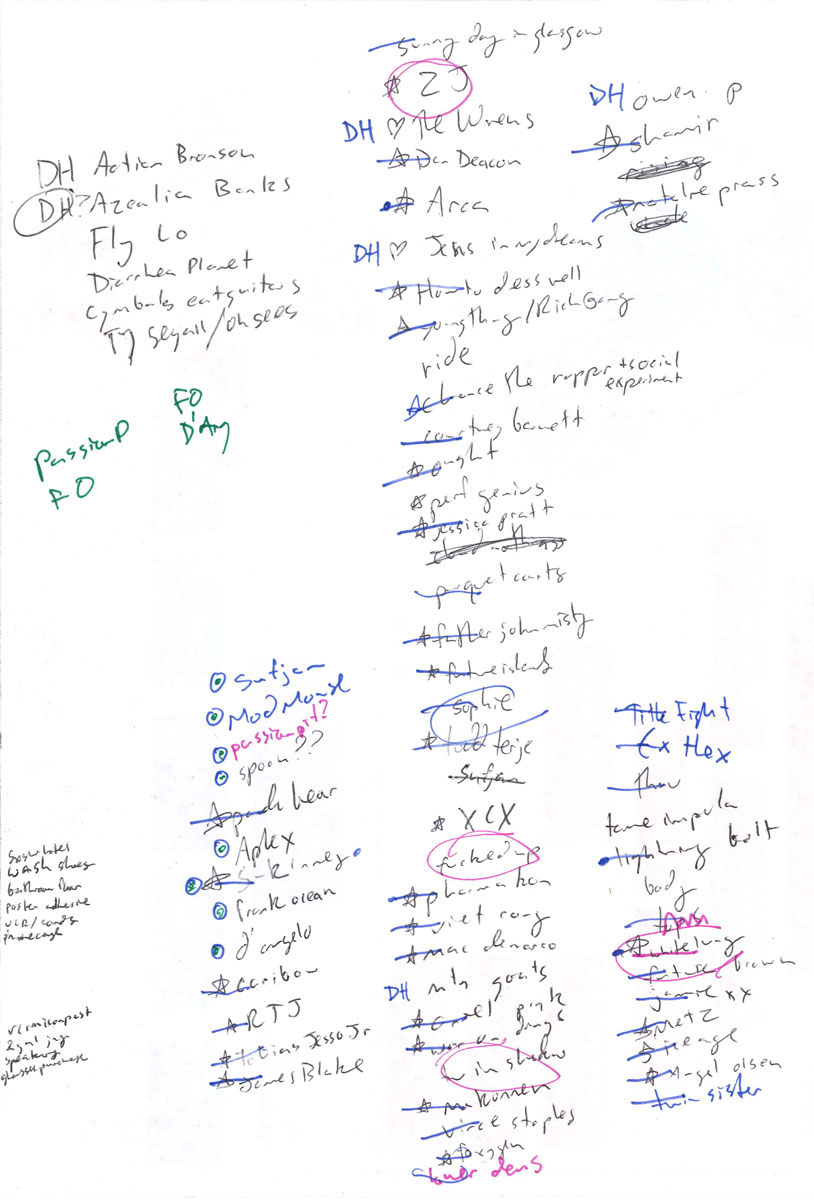 sunny day in glasgow
ZJ
DH ♡ The Wrens
Dan Deacon
Arca
DH ♡ Jens in my dreams
How to dress well
young thug/Rich Gang
ride
chance the rapper + social
experiment
courtney barnett
ought
perf genius
jessica pratt
parquet courts
father john misty
future islands
sophie
todd terje
Sufjan
XCX
fucked up
pharmakon
viet cong
mac demarco
DH mtn goats
ariel pink
tw in shadow
makonnen
vince staples
foxygen
lower dens
DH owen P
shamir
natalie prass
DH Action Bronson
DH? Azealia Banks
Fly Lo
Diarrhea Planet
Cymbals eat guitars
Ty Segall/oh sees
Passion P
FO
FO
D'Ang
Sufjan
Mod Mouse
passion pit?
spoon??
panda bear
Aphex
S-Kinney
frank ocean
d'angelo
caribou
RTJ
Tobias Jesso Jr
James Blake
wash shoes
bathroom floor
poster adhesive
vermicompost
2 gal jug
speakers
glasses purchase
Title Fight
Ex Hex
thou
tame impala
lightning bolt
body
white lung
future brown
jamie xx
Metz
iceage
Angel olsen
twin sister